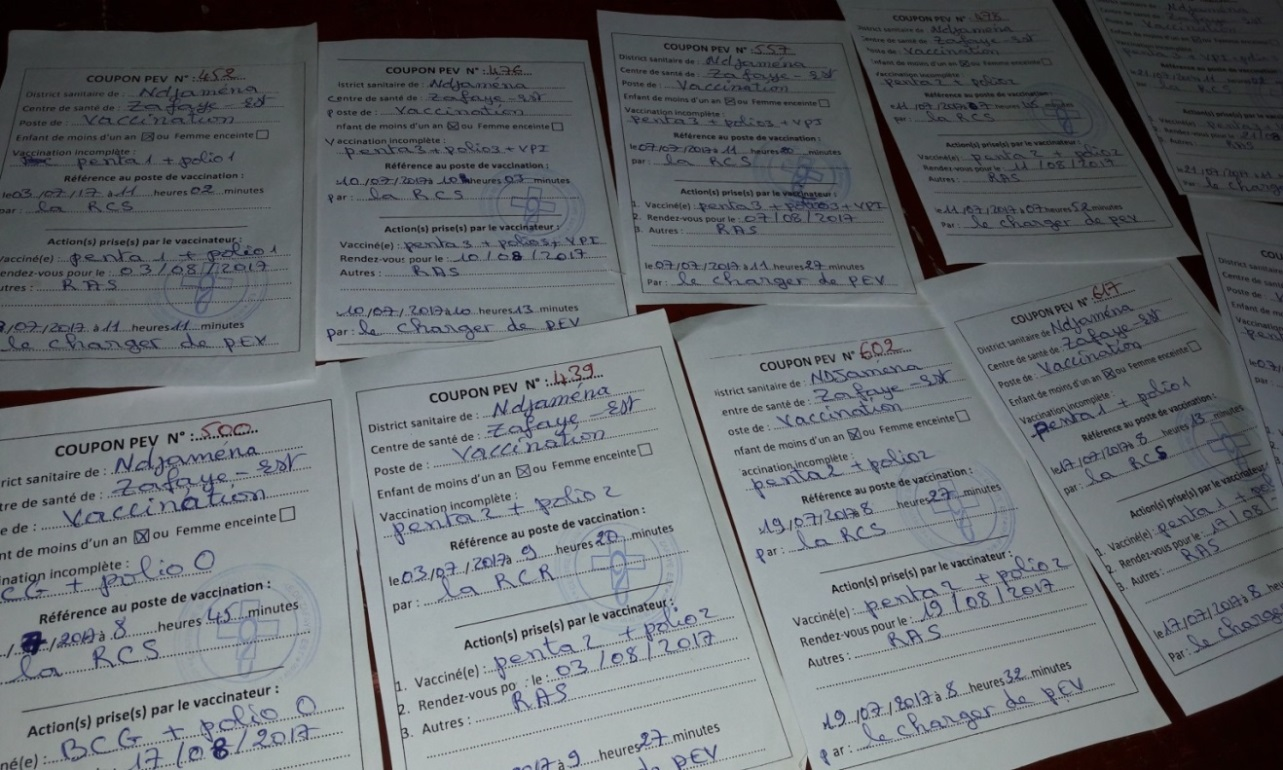 COUPON PEV N° : 452
District sanitaire de : Ndjaména
Centre de santé de : Zafaye-Est
Poste de : Vaccination
Enfant de moins d'un an ☒ ou Femme enceinte ☐
Vaccination incomplète :
penta 1 + polio 1
Référence au poste de vaccination :
le 03/07/17 à 11 heures 02 minutes
par : la RCS
Action(s) prise(s) par le vaccinateur :
Vacciné(e) : penta 1 + polio 1
endez-vous pour le : 03/08/2017
utres : RAS
/07/2017 à 11 heures 11 minutes
le charger de PEV
COUPON PEV N° : 476
istrict sanitaire de : Ndjaména
Centre de santé de : Zafaye-Est
Poste de : Vaccination
nfant de moins d'un an ☒ ou Femme enceinte ☐
Vaccination incomplète :
penta 3 + polio 3 + VPI
Référence au poste de vaccination :
10/07/2017 à 10 heures 03 minutes
par : la RCS
Action(s) prise(s) par le vaccinateur :
Vacciné(e) : penta 3 + polio 3 + VPI
Rendez-vous pour le : 10/08/2017
Autres : RAS
10/07/2017 à 10 heures 13 minutes
par : le charger de PEV
COUPON PEV N° : 557
District sanitaire de : Ndjaména
Centre de santé de : Zafaye-Est
Poste de : Vaccination
Enfant de moins d'un an ☒ ou Femme enceinte ☐
Vaccination incomplète :
penta 3 + polio 3 + VPI
Référence au poste de vaccination :
le 07/07/2017 à 11 heures minutes
par : la RCS
Action(s) prise(s) par le vaccinateur :
1. Vacciné(e) : penta 3 + polio 3 + VPI
2. Rendez-vous pour le : 07/08/2017
3. Autres : RAS
le 07/07/2017 à 11 heures 27 minutes
Par : le charger de PEV
COUPON PEV N° : 478
District sanitaire de : Ndjaména
Centre de santé de : Zafaye-Est
Poste de : Vaccination
Enfant de moins d'un an ☒ ou Femme enceinte ☐
Vaccination incomplète :
penta 2 + polio 2
Référence au poste de vaccination :
le 11/07/2017 à 07 heures minutes
par : la RCS
Action(s) prise(s) par le vaccinateur :
Vacciné(e) : penta 2 + polio 2
Rendez-vous pour le : 11/08/2017
Autres : RAS
le 11/07/2017 à 07 heures 52 minutes
Par : le charger de PEV
COUPON PEV N° : 500
rict sanitaire de : Ndjaména
tre de santé de : Zafaye-Est
e de : Vaccination
nt de moins d'un an ☒ ou Femme enceinte ☐
ination incomplète :
CG + polio 0
Référence au poste de vaccination :
/2017 à 8 heures 45 minutes
la RCS
Action(s) prise(s) par le vaccinateur :
né(e) : BCG + polio 0
17/08/2017
COUPON PEV N° : 439
District sanitaire de : Ndjaména
Centre de santé de : Zafaye-Est
Poste de : Vaccination
Enfant de moins d'un an ☒ ou Femme enceinte ☐
Vaccination incomplète :
penta 2 + polio 2
Référence au poste de vaccination :
le 03/07/2017 à 9 heures 20 minutes
par : la RCR
Action(s) prise(s) par le vaccinateur :
1. Vacciné(e) : penta 2 + polio 2
2. Rendez-vous po le : 03/08/2017
3. Autres : RAS
2017 à 9 heures 27 minutes
de PEV
COUPON PEV N° 602
istrict sanitaire de : Ndjamena
entre de santé de : Zafaye-Est
oste de : Vaccination
nfant de moins d'un an ☒ ou Femme enceinte ☐
accination incomplète :
penta 2 + polio 2
Référence au poste de vaccination :
19/07/2017 à 8 heures 27 minutes
par : la RCS
Action(s) prise(s) par le vaccinateur :
Vacciné(e) : penta 2 + polio 2
Rendez-vous pour le : 19/08/2017
Autres : RAS
19/07/2017 à 8 heures 32 minutes
par : le charger de PEV
COUPON PEV N° : 617
District sanitaire de Ndjaména
Centre de santé de : Zafaye-Est
Poste de : Vaccination
Enfant de moins d'un an ☒ ou Femme enceinte ☐
Vaccination incomplète :
penta 1 + polio 1
Référence au poste de vaccination :
le 17/07/2017 à 8 heures 13 minutes
par : la RCS
Action(s) prise(s) par le vaccinateur
1. Vacciné(e) : penta 1 + pol
2. Rendez-vous pour le : 17/08/
3. Autres : RAS
le 17/07/2017 à 8 he
Par : le charge